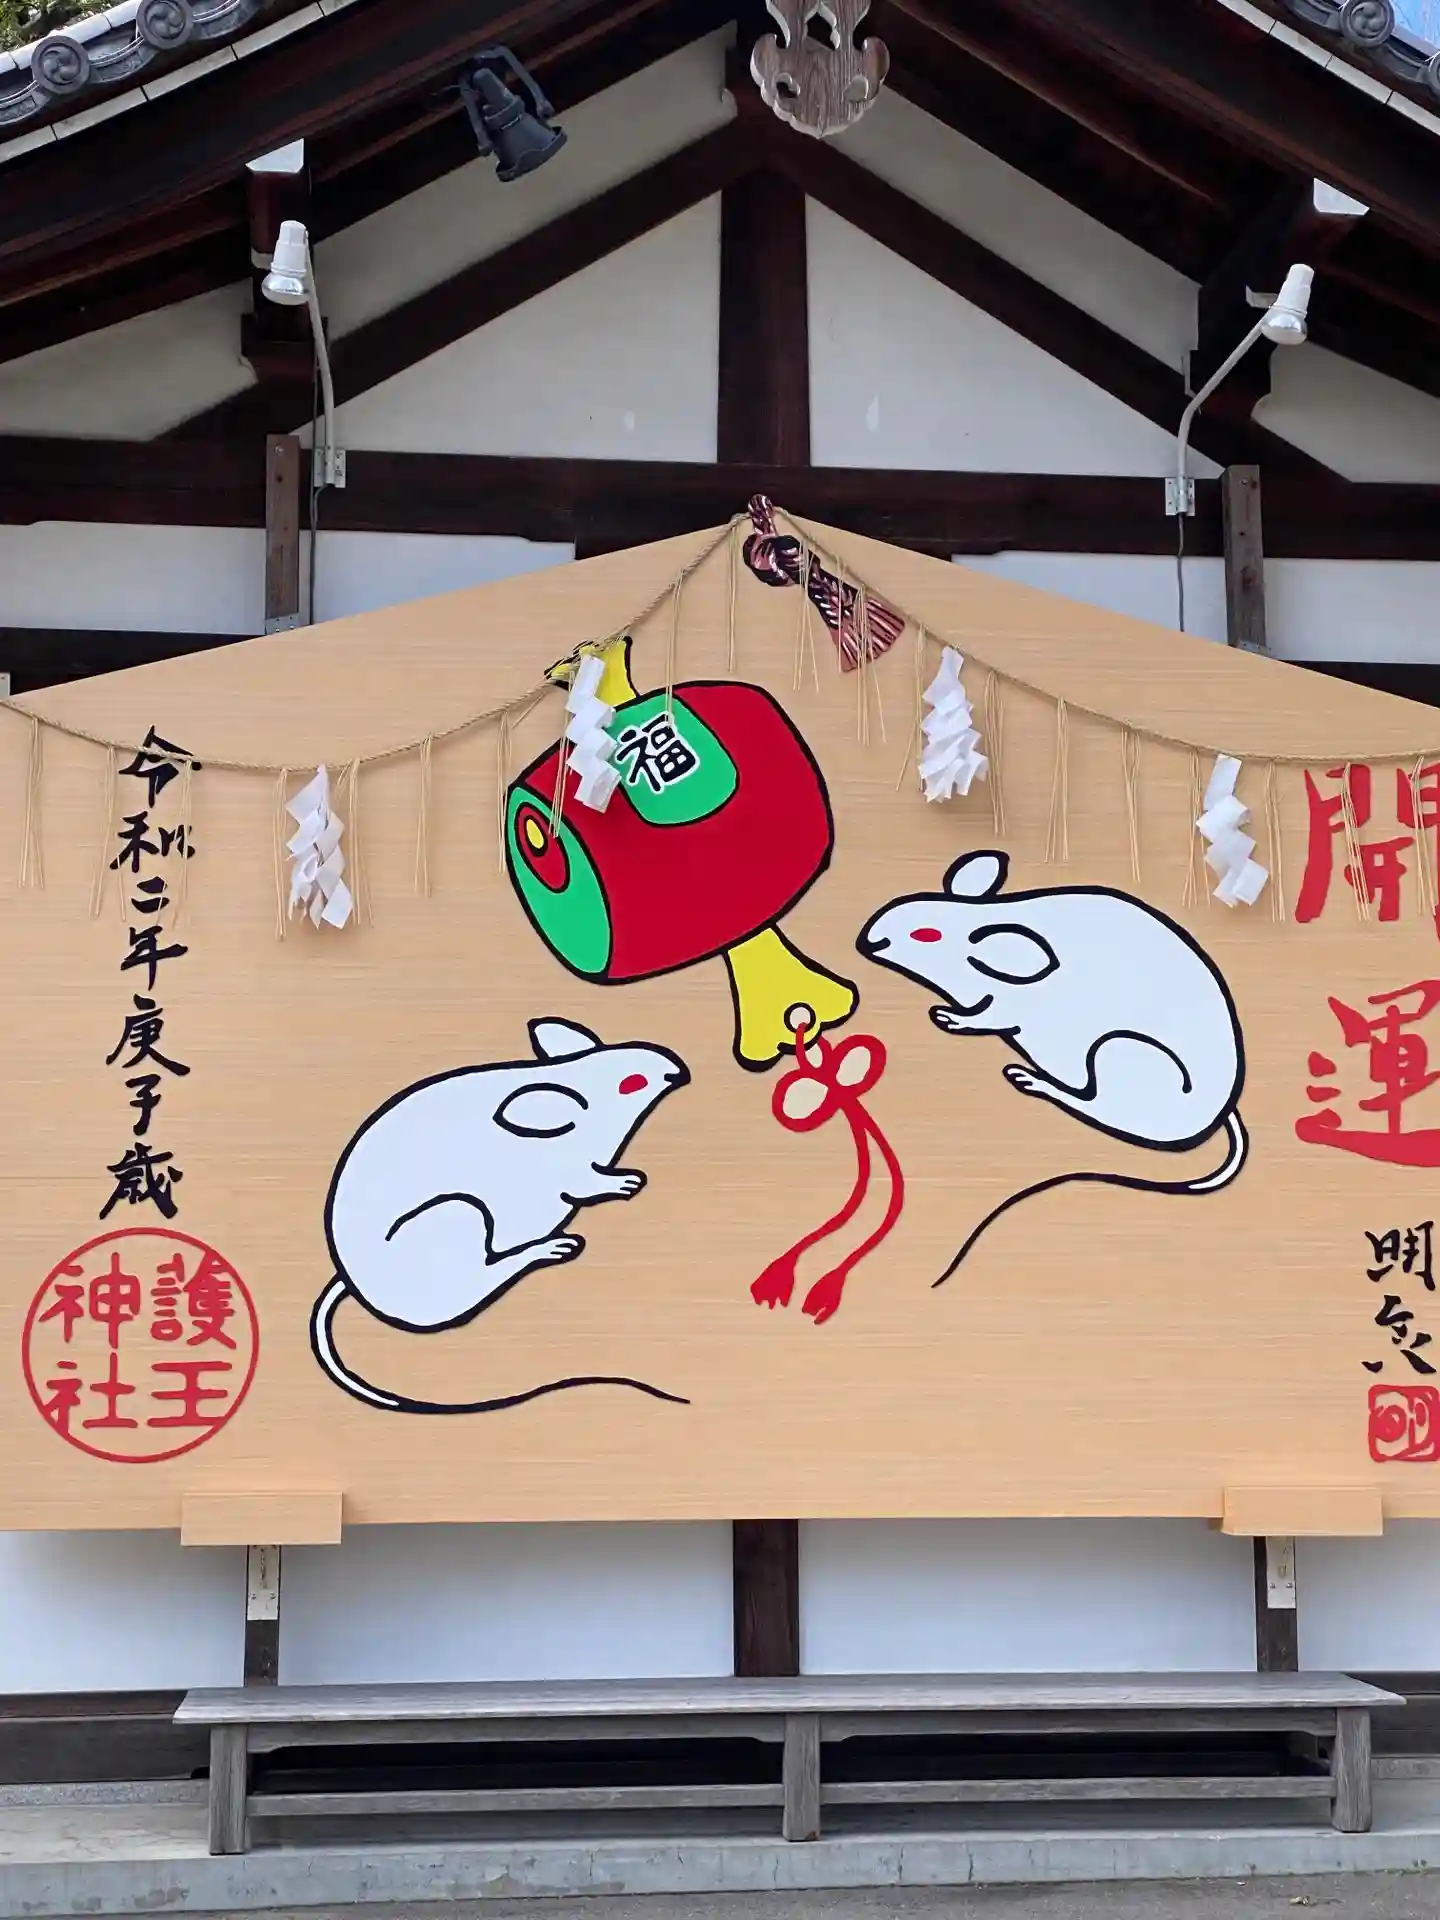 開運
明六
福
令和二年庚子歳
護王
神社